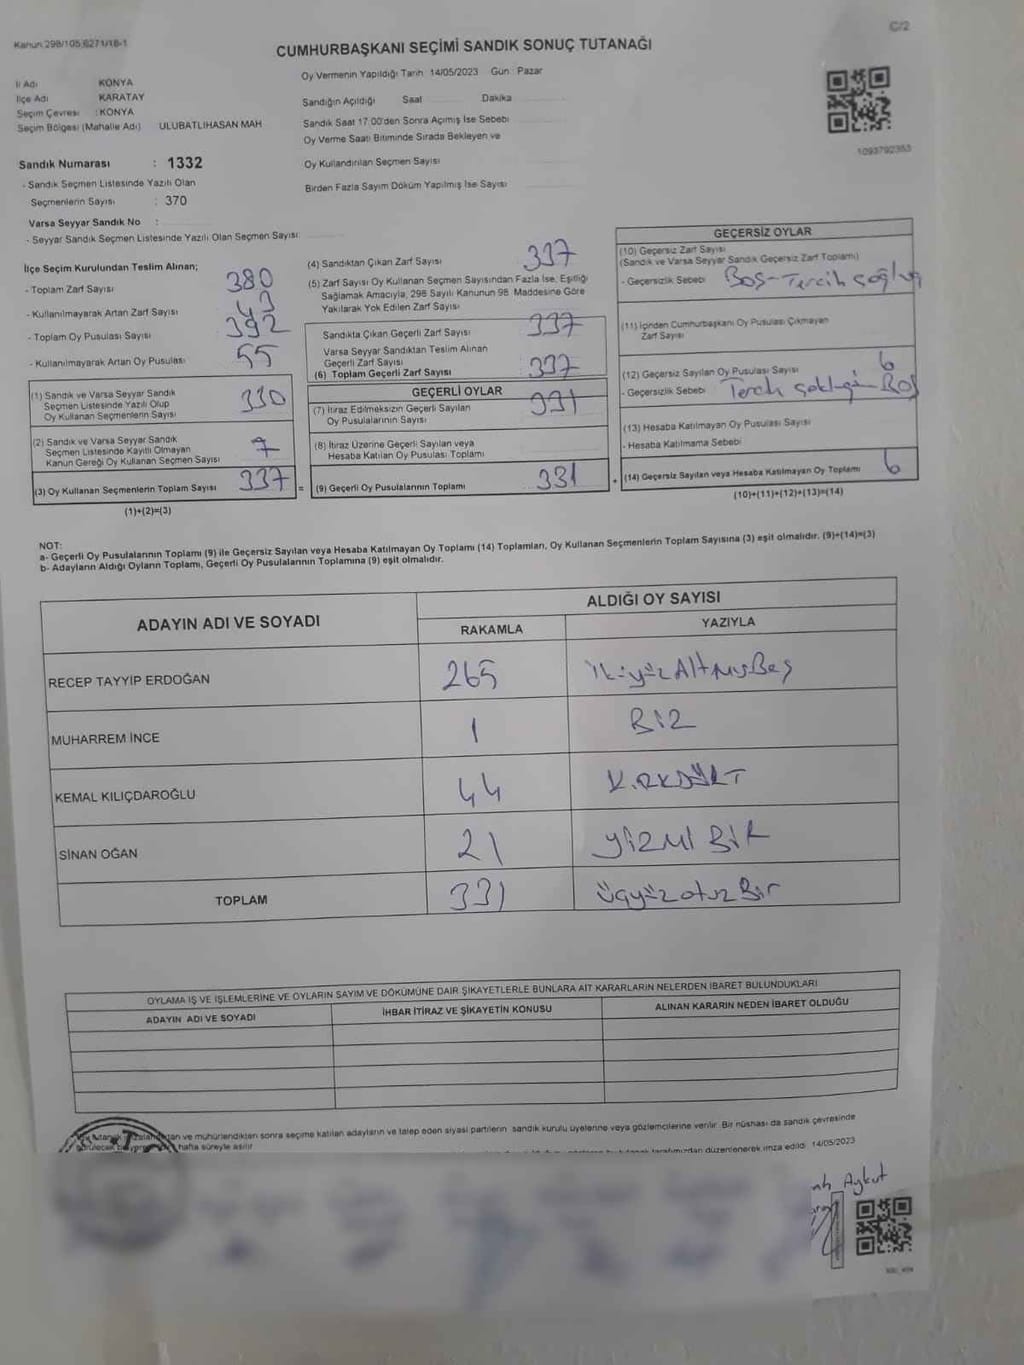 Kanun 298/105,6271/18-1
C/2
CUMHURBAŞKANI SEÇİMİ SANDIK SONUÇ TUTANAĞI
İl Adı KONYA
İlçe Adı KARATAY
Seçim Çevresi : KONYA
Seçim Bölgesi (Mahalle Adı) ULUBATLIHASAN MAH
Sandık Numarası : 1332
- Sandık Seçmen Listesinde Yazılı Olan
Seçmenlerin Sayısı : 370
Varsa Seyyar Sandık No :
- Seyyar Sandık Seçmen Listesinde Yazılı Olan Seçmen Sayısı:
Oy Vermenin Yapıldığı Tarih: 14/05/2023 Gün : Pazar
Sandığın Açıldığı Saat Dakika
Sandık Saat 17.00'den Sonra Açılmış İse Sebebi
Oy Verme Saati Bitiminde Sırada Bekleyen ve
Oy Kullandırılan Seçmen Sayısı
Birden Fazla Sayım Döküm Yapılmış İse Sayısı
1093792353
İlçe Seçim Kurulundan Teslim Alınan;
- Toplam Zarf Sayısı 380
- Kullanılmayarak Artan Zarf Sayısı 43
- Toplam Oy Pusulası Sayısı 392
- Kullanılmayarak Artan Oy Pusulası 55
(1) Sandık ve Varsa Seyyar Sandık
Seçmen Listesinde Yazılı Olup
Oy Kullanan Seçmenlerin Sayısı 330
(2) Sandık ve Varsa Seyyar Sandık
Seçmen Listesinde Kayıtlı Olmayan
Kanun Gereği Oy Kullanan Seçmen Sayısı 7
(3) Oy Kullanan Seçmenlerin Toplam Sayısı 337
(1)+(2)=(3)
(4) Sandıktan Çıkan Zarf Sayısı 337
(5) Zarf Sayısı Oy Kullanan Seçmen Sayısından Fazla İse, Eşitliği
Sağlamak Amacıyla, 298 Sayılı Kanunun 98. Maddesine Göre
Yakılarak Yok Edilen Zarf Sayısı
Sandıkta Çıkan Geçerli Zarf Sayısı 337
Varsa Seyyar Sandıktan Teslim Alınan
Geçerli Zarf Sayısı
(6) Toplam Geçerli Zarf Sayısı 337
GEÇERLİ OYLAR
(7) İtiraz Edilmeksizin Geçerli Sayılan
Oy Pusulalarının Sayısı 331
(8) İtiraz Üzerine Geçerli Sayılan veya
Hesaba Katılan Oy Pusulası Toplamı
= (9) Geçerli Oy Pusulalarının Toplamı 331
GEÇERSİZ OYLAR
(10) Geçersiz Zarf Sayısı
(Sandık ve Varsa Seyyar Sandık Geçersiz Zarf Toplamı)
- Geçersizlik Sebebi Boş-Tercih
(11) İçinden Cumhurbaşkanı Oy Pusulası Çıkmayan
Zarf Sayısı
(12) Geçersiz Sayılan Oy Pusulası Sayısı 6
- Geçersizlik Sebebi Boş
(13) Hesaba Katılmayan Oy Pusulası Sayısı
- Hesaba Katılmama Sebebi
+ (14) Geçersiz Sayılan veya Hesaba Katılmayan Oy Toplamı 6
(10)+(11)+(12)+(13)=(14)
NOT:
a- Geçerli Oy Pusulalarının Toplamı (9) ile Geçersiz Sayılan veya Hesaba Katılmayan Oy Toplamı (14) Toplamları, Oy Kullanan Seçmenlerin Toplam Sayısına (3) eşit olmalıdır. (9)+(14)=(3)
b- Adayların Aldığı Oyların Toplamı, Geçerli Oy Pusulalarının Toplamına (9) eşit olmalıdır.
ADAYIN ADI VE SOYADI
ALDIĞI OY SAYISI
RAKAMLA YAZIYLA
RECEP TAYYİP ERDOĞAN 265 ikiyüzAltmışBeş
MUHARREM İNCE 1 BİR
KEMAL KILIÇDAROĞLU 44 KIRKDÖRT
SİNAN OĞAN 21 YİRMİ BİR
TOPLAM 331 üçyüzotuzBir
OYLAMA İŞ VE İŞLEMLERİNE VE OYLARIN SAYIM VE DÖKÜMÜNE DAİR ŞİKAYETLERLE BUNLARA AİT KARARLARIN NELERDEN İBARET BULUNDUKLARI
ADAYIN ADI VE SOYADI İHBAR İTİRAZ VE ŞİKAYETİN KONUSU ALINAN KARARIN NEDEN İBARET OLDUĞU
ve mühürlendikten sonra seçime katılan adayların ve talep eden siyasi partilerin sandık kurulu üyelerine veya gözlemcilerine verilir. Bir nüshası da sandık çevresinde
hafta süreyle asılır.
tarafımızdan düzenlenerek imza edildi. 14/05/2023
Aykut